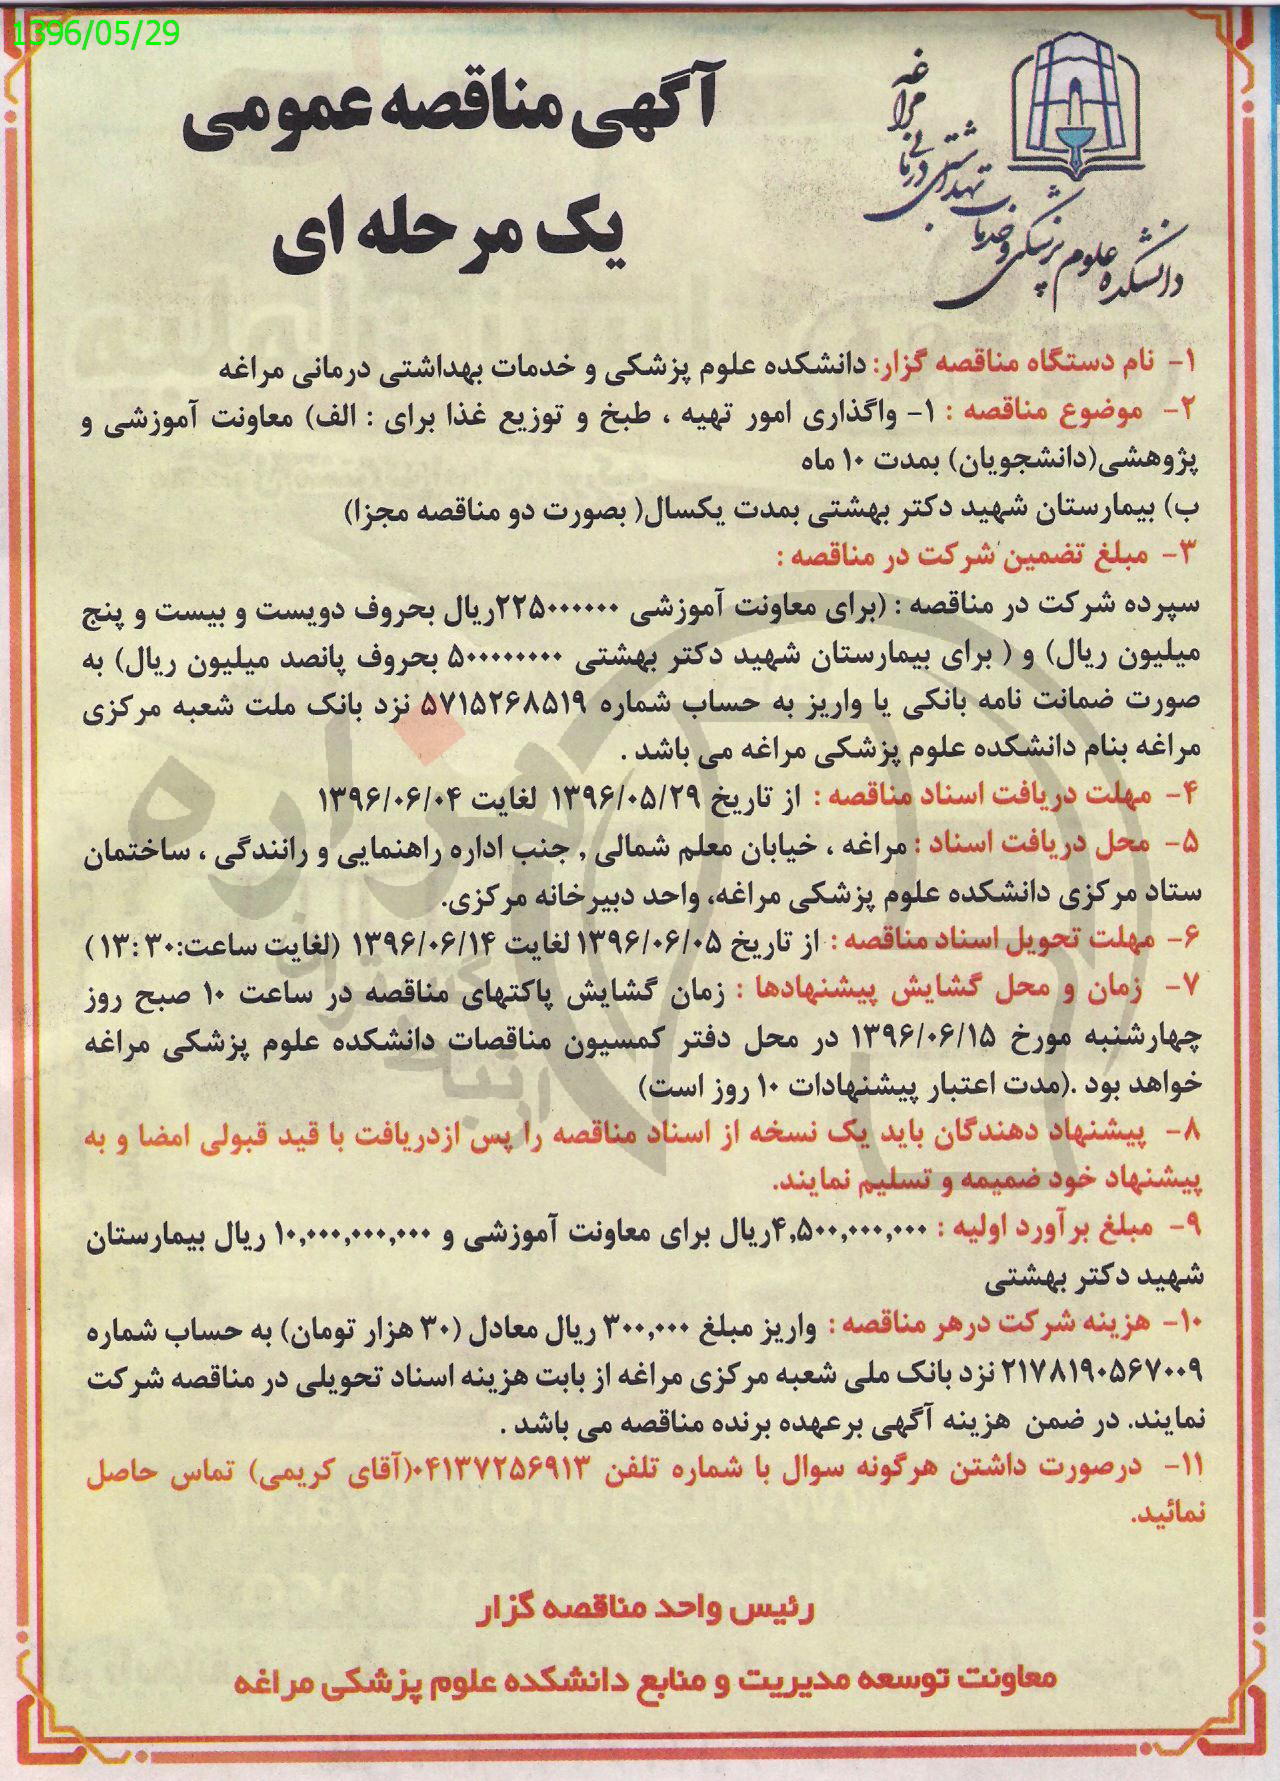 1396/05/29
دانشکده علوم پزشکی و خدمات بهداشتی درمانی مراغه
آگهی مناقصه عمومی
یک مرحله ای
۱- نام دستگاه مناقصه گزار: دانشکده علوم پزشکی و خدمات بهداشتی درمانی مراغه
۲- موضوع مناقصه : ۱- واگذاری امور تهیه ، طبخ و توزیع غذا برای : الف) معاونت آموزشی و
پژوهشی(دانشجویان) بمدت ۱۰ ماه
ب) بیمارستان شهید دکتر بهشتی بمدت یکسال( بصورت دو مناقصه مجزا)
۳- مبلغ تضمین شرکت در مناقصه :
سپرده شرکت در مناقصه : (برای معاونت آموزشی ۲۲۵۰۰۰۰۰۰ریال بحروف دویست و بیست و پنج
میلیون ریال) و ( برای بیمارستان شهید دکتر بهشتی ۵۰۰۰۰۰۰۰۰ بحروف پانصد میلیون ریال) به
صورت ضمانت نامه بانکی یا واریز به حساب شماره ۵۷۱۵۲۶۸۵۱۹ نزد بانک ملت شعبه مرکزی
مراغه بنام دانشکده علوم پزشکی مراغه می باشد .
۴- مهلت دریافت اسناد مناقصه : از تاریخ ۱۳۹۶/۰۵/۲۹ لغایت ۱۳۹۶/۰۶/۰۴
۵- محل دریافت اسناد : مراغه ، خیابان معلم شمالی , جنب اداره راهنمایی و رانندگی ، ساختمان
ستاد مرکزی دانشکده علوم پزشکی مراغه، واحد دبیرخانه مرکزی.
۶- مهلت تحویل اسناد مناقصه : از تاریخ ۱۳۹۶/۰۶/۰۵ لغایت ۱۳۹۶/۰۶/۱۴ (لغایت ساعت:۱۳:۳۰)
۷- زمان و محل گشایش پیشنهادها : زمان گشایش پاکتهای مناقصه در ساعت ۱۰ صبح روز
چهارشنبه مورخ ۱۳۹۶/۰۶/۱۵ در محل دفتر کمسیون مناقصات دانشکده علوم پزشکی مراغه
خواهد بود .(مدت اعتبار پیشنهادات ۱۰ روز است)
۸- پیشنهاد دهندگان باید یک نسخه از اسناد مناقصه را پس ازدریافت با قید قبولی امضا و به
پیشنهاد خود ضمیمه و تسلیم نمایند.
۹- مبلغ برآورد اولیه : ۴,۵۰۰,۰۰۰,۰۰۰ریال برای معاونت آموزشی و ۱۰,۰۰۰,۰۰۰,۰۰۰ ریال بیمارستان
شهید دکتر بهشتی
۱۰- هزینه شرکت درهر مناقصه : واریز مبلغ ۳۰۰,۰۰۰ ریال معادل (۳۰ هزار تومان) به حساب شماره
۲۱۷۸۱۹۰۵۶۷۰۰۹ نزد بانک ملی شعبه مرکزی مراغه از بابت هزینه اسناد تحویلی در مناقصه شرکت
نمایند. در ضمن هزینه آگهی برعهده برنده مناقصه می باشد .
۱۱- درصورت داشتن هرگونه سوال با شماره تلفن ۰۴۱۳۷۲۵۶۹۱۳(آقای کریمی) تماس حاصل
نمائید.
رئیس واحد مناقصه گزار
معاونت توسعه مدیریت و منابع دانشکده علوم پزشکی مراغه